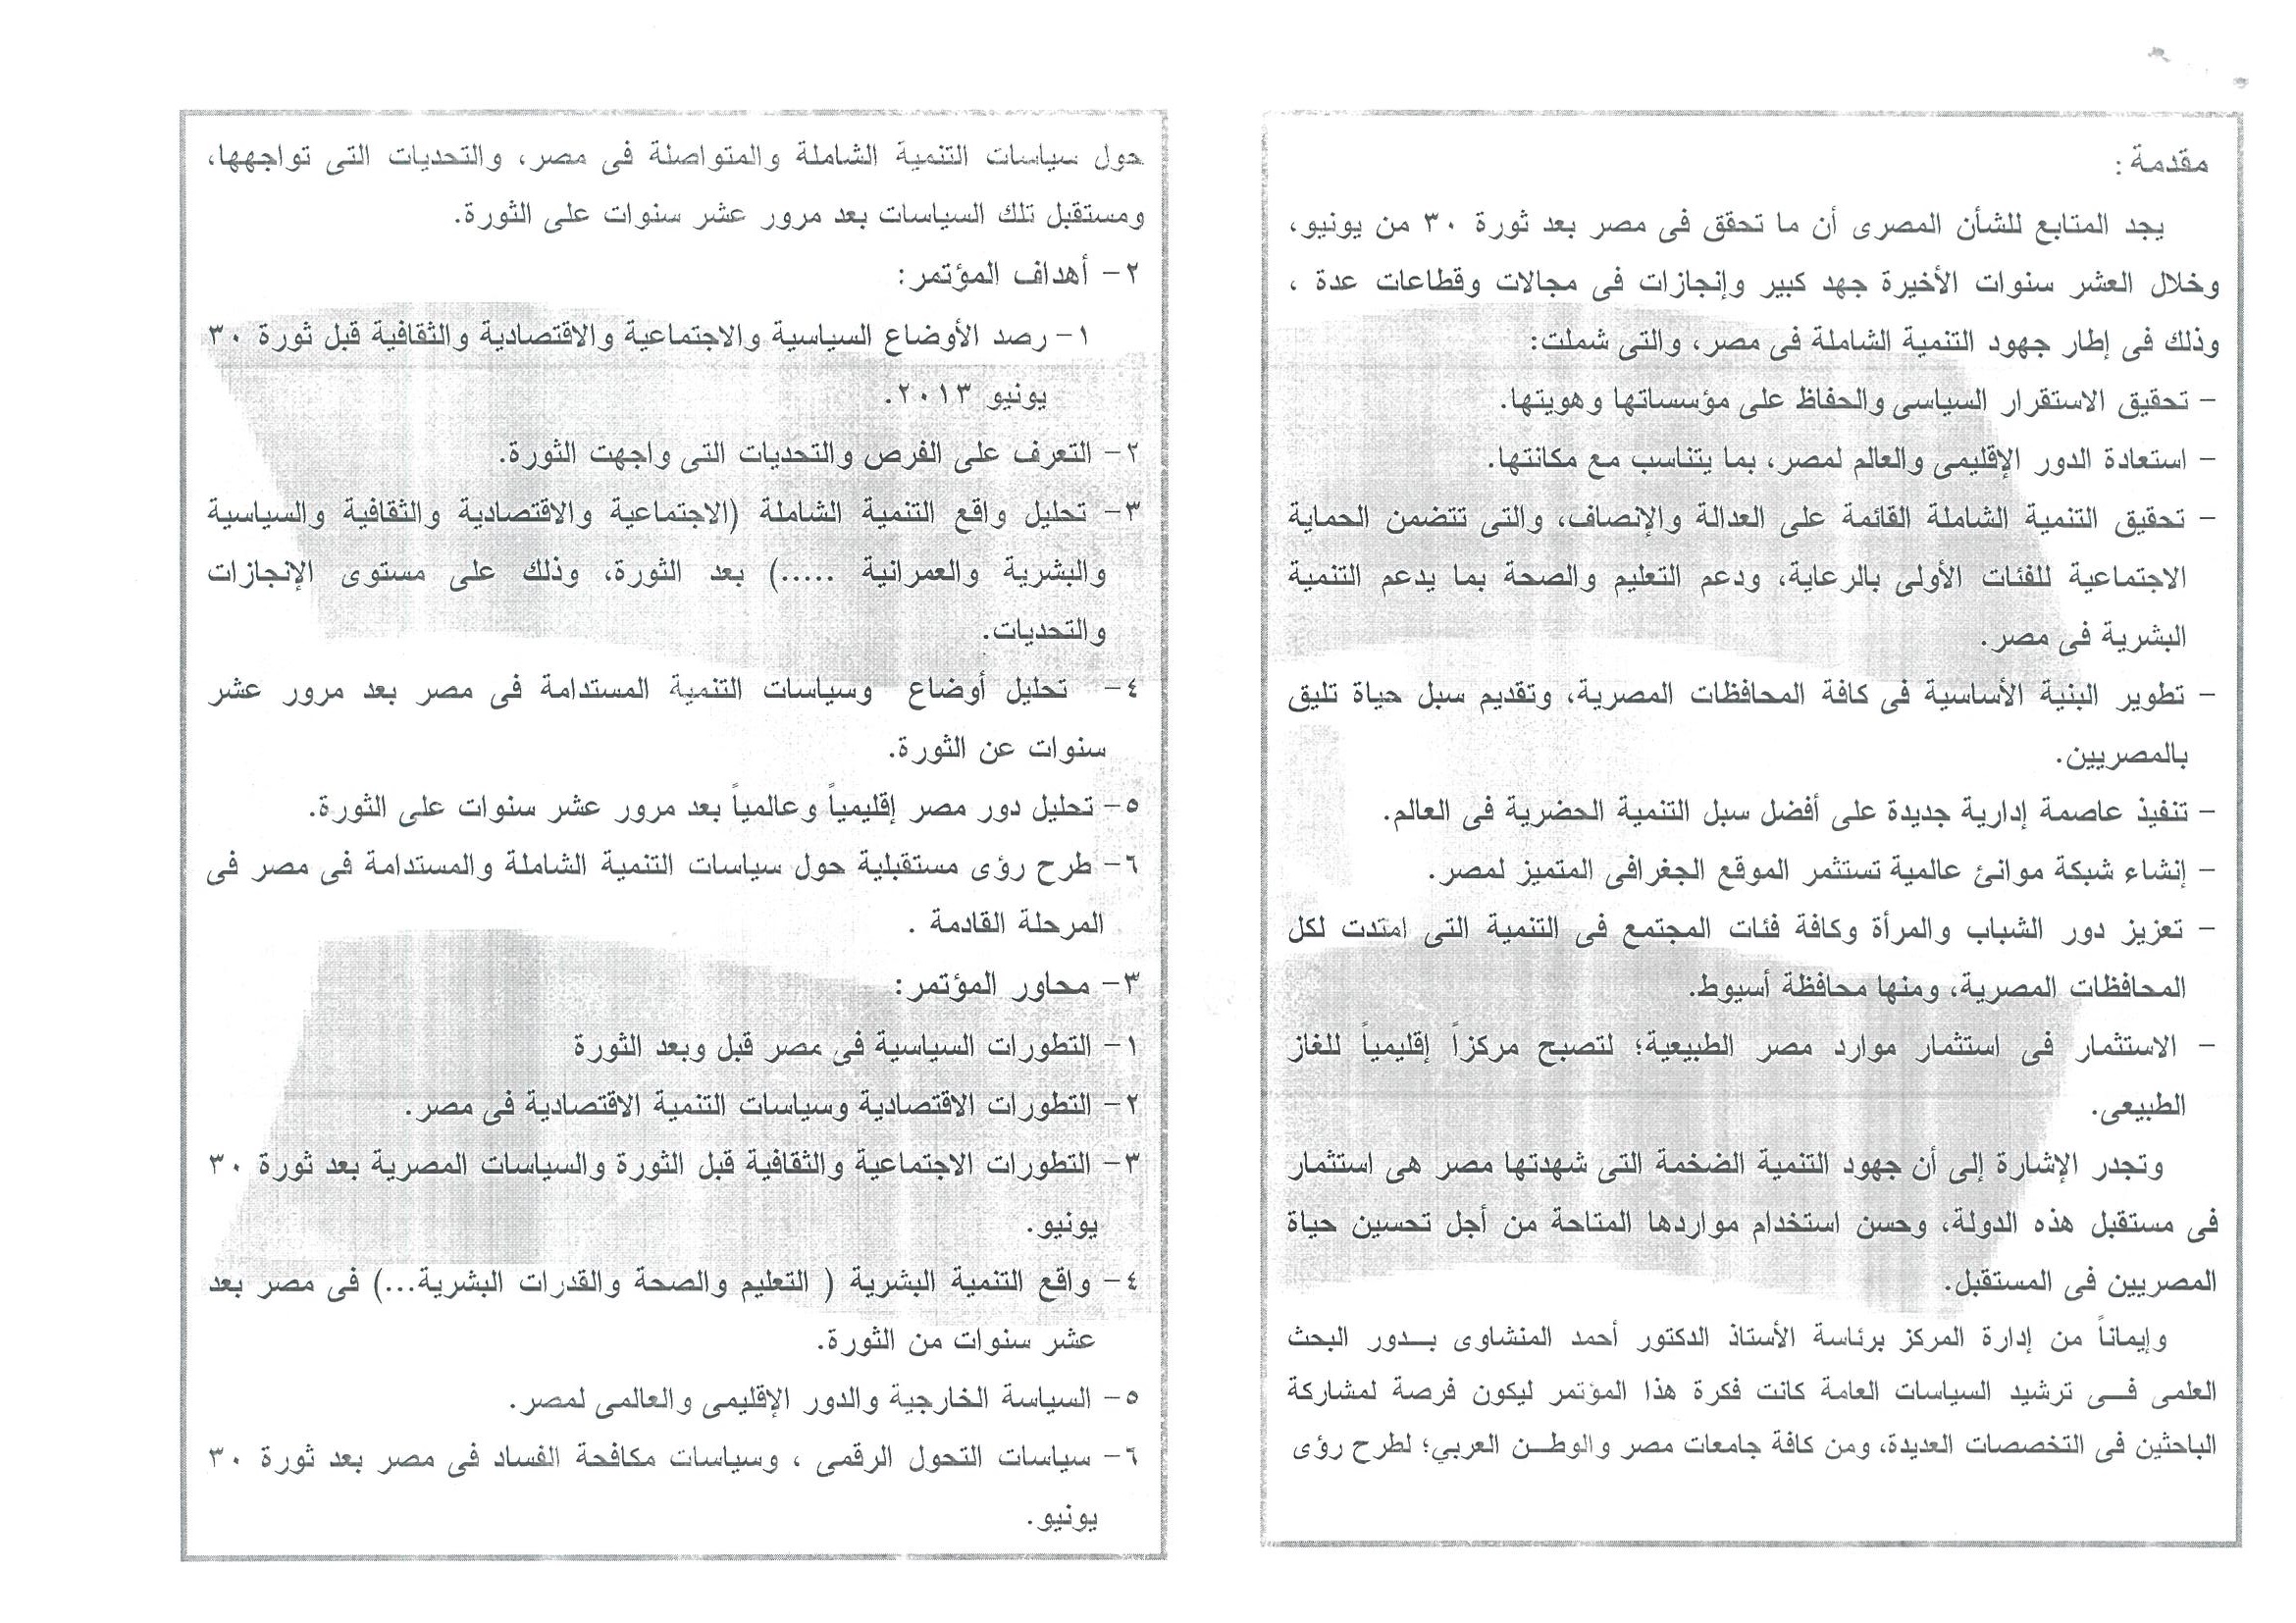 مقدمة:
يجد المتابع للشأن المصرى أن ما تحقق فى مصر بعد ثورة ٣٠ من يونيو،
وخلال العشر سنوات الأخيرة جهد كبير وإنجازات فى مجالات وقطاعات عدة ،
وذلك فى إطار جهود التنمية الشاملة فى مصر، والتى شملت:
- تحقيق الاستقرار السياسى والحفاظ على مؤسساتها وهويتها.
- استعادة الدور الإقليمى والعالم لمصر، بما يتناسب مع مكانتها.
- تحقيق التنمية الشاملة القائمة على العدالة والإنصاف، والتى تتضمن الحماية
الاجتماعية للفئات الأولى بالرعاية، ودعم التعليم والصحة بما يدعم التنمية
البشرية فى مصر.
- تطوير البنية الأساسية فى كافة المحافظات المصرية، وتقديم سبل حياة تليق
بالمصريين.
- تنفيذ عاصمة إدارية جديدة على أفضل سبل التنمية الحضرية فى العالم.
- إنشاء شبكة موانئ عالمية تستثمر الموقع الجغرافى المتميز لمصر.
- تعزيز دور الشباب والمرأة وكافة فئات المجتمع فى التنمية التى امتدت لكل
المحافظات المصرية، ومنها محافظة أسيوط.
- الاستثمار فى استثمار موارد مصر الطبيعية؛ لتصبح مركزاً إقليمياً للغاز
الطبيعى.
وتجدر الإشارة إلى أن جهود التنمية الضخمة التى شهدتها مصر هى استثمار
فى مستقبل هذه الدولة، وحسن استخدام مواردها المتاحة من أجل تحسين حياة
المصريين فى المستقبل.
وإيماناً من إدارة المركز برئاسة الأستاذ الدكتور أحمد المنشاوى بـــدور البحث
العلمى فـــى ترشيد السياسات العامة كانت فكرة هذا المؤتمر ليكون فرصة لمشاركة
الباحثين فى التخصصات العديدة، ومن كافة جامعات مصر والوطـــن العربي؛ لطرح رؤى
حول سياسات التنمية الشاملة والمتواصلة فى مصر، والتحديات التى تواجهها،
ومستقبل تلك السياسات بعد مرور عشر سنوات على الثورة.
٢- أهداف المؤتمر:
١- رصد الأوضاع السياسية والاجتماعية والاقتصادية والثقافية قبل ثورة ٣٠
يونيو ٢٠١٣.
٢- التعرف على الفرص والتحديات التى واجهت الثورة.
٣- تحليل واقع التنمية الشاملة (الاجتماعية والاقتصادية والثقافية والسياسية
والبشرية والعمرانية .....) بعد الثورة، وذلك على مستوى الإنجازات
والتحديات.
٤- تحليل أوضاع وسياسات التنمية المستدامة فى مصر بعد مرور عشر
سنوات عن الثورة.
٥- تحليل دور مصر إقليمياً وعالمياً بعد مرور عشر سنوات على الثورة.
٦- طرح رؤى مستقبلية حول سياسات التنمية الشاملة والمستدامة فى مصر فى
المرحلة القادمة .
٣- محاور المؤتمر:
١- التطورات السياسية فى مصر قبل وبعد الثورة
٢- التطورات الاقتصادية وسياسات التنمية الاقتصادية فى مصر.
٣- التطورات الاجتماعية والثقافية قبل الثورة والسياسات المصرية بعد ثورة ٣٠
يونيو.
٤- واقع التنمية البشرية ( التعليم والصحة والقدرات البشرية...) فى مصر بعد
عشر سنوات من الثورة.
٥- السياسة الخارجية والدور الإقليمى والعالمى لمصر.
٦- سياسات التحول الرقمى ، وسياسات مكافحة الفساد فى مصر بعد ثورة ٣٠
يونيو.